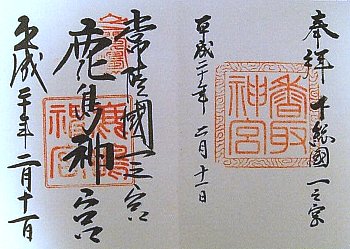 奉拝 下総國一之宮
香取神宮
平成二十年 二月十一日
常陸國一之宮
鹿島神宮
鹿島神宮
平成二十年 二月十一日